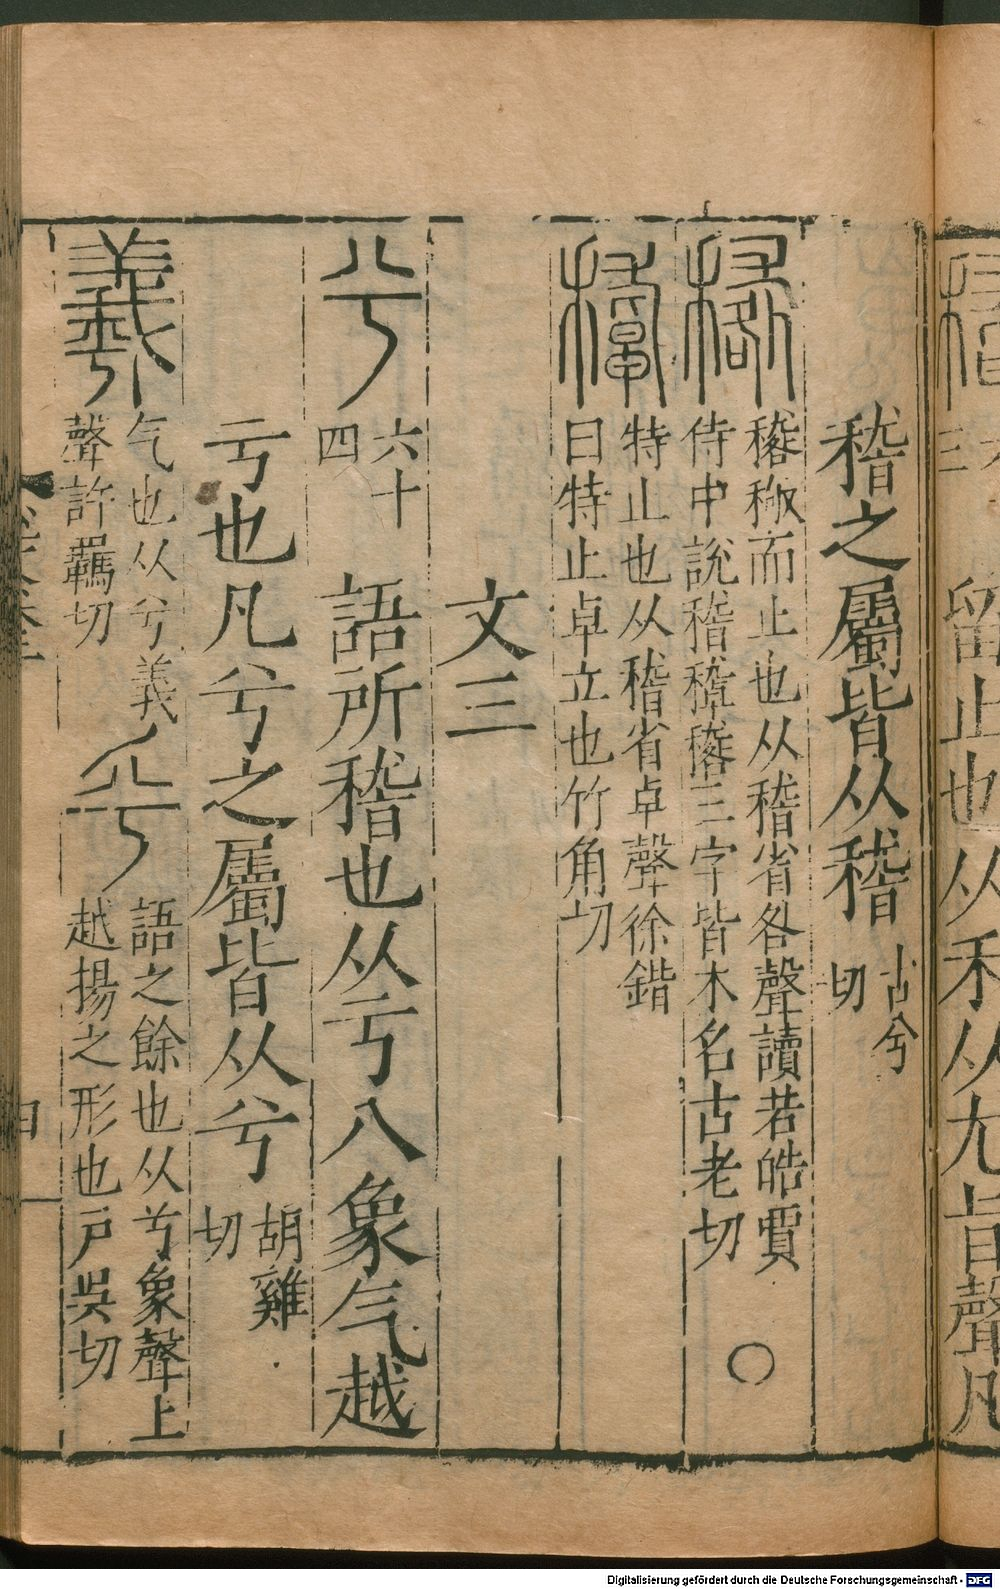 三
留止也从禾从尤旨聲凡
稽之屬皆从稽 古兮
切
而止也从稽省咎聲讀若皓賈
侍中說稽三字皆木名古老切
○
特止也从稽省卓聲徐鍇
曰特止卓立也竹角切
文三
兮 六十
四
語所稽也从丂八象气越
亏也凡兮之屬皆从兮 胡雞
切
羲 气也从兮義
聲許羈切
乎 語之餘也从兮象聲上
越揚之形也戶吳切
Digitalisierung gefördert durch die Deutsche Forschungsgemeinschaft - DFG